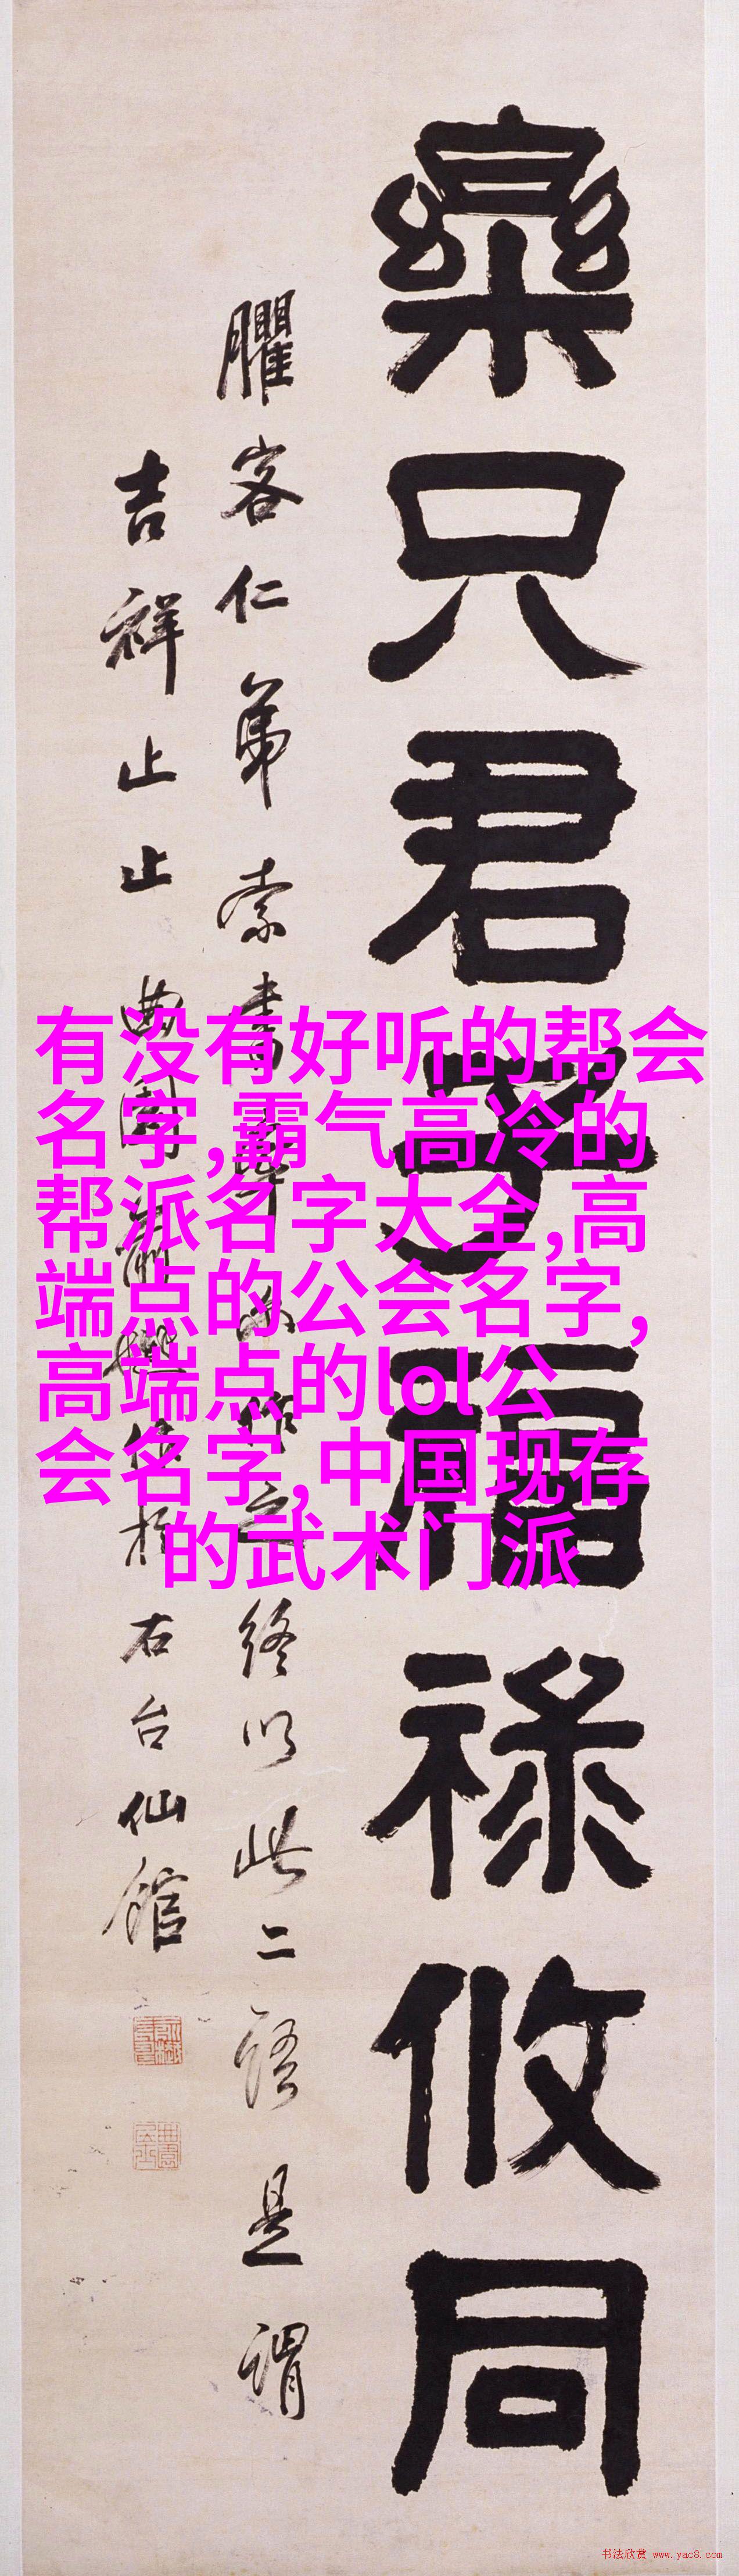 樂只君子福祿攸同
臞客仁弟索書
終以此二語是謂
吉祥止止曲園
右台仙館
有没有好听的帮会
名字,霸气高冷的
帮派名字大全,高
端点的公会名字,
高端点的lol公
会名字,中国现存
的武术门派
书法欣赏 www.yac8.com